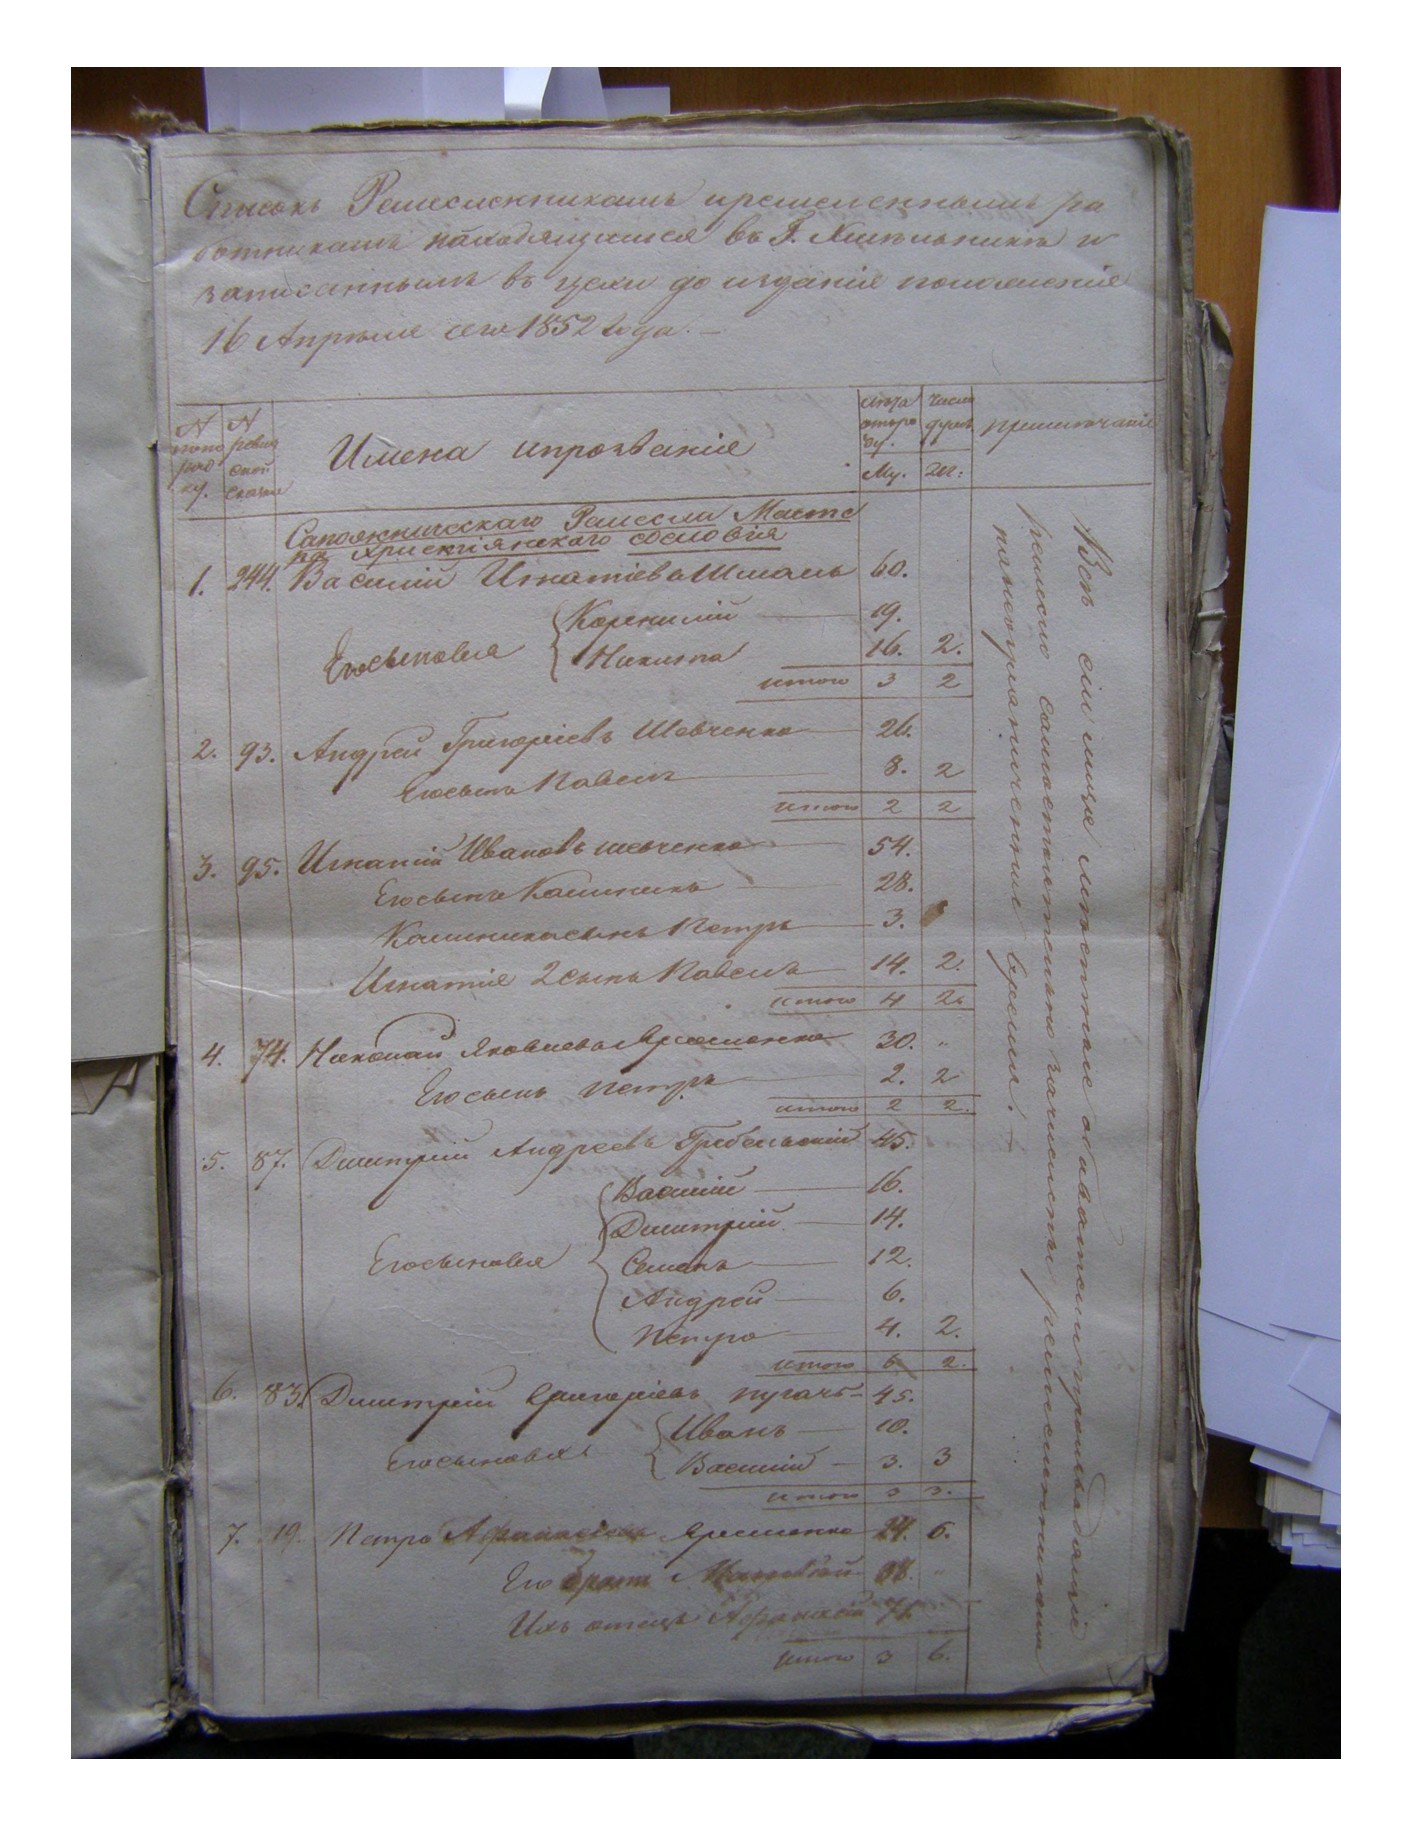 Списокъ Ремесленникамъ иремесленнымъ ра
ботникамъ находящимся въ Г. Хмѣльникѣ и
записаннымъ въ цехи до изданія положенія
16 Апрѣля сего 1852 года. —
N попо ряд ку.
N ревиз ской сказки
Имена ипрозванія
лѣта отъро ду.
Му.
Число душъ
Жн:
примѣчаніе
Сапожническаго Ремесла Масте
ра Христіянскаго сословія
1. 244. Василій Игнатіевъ Шмаль 60.
Его сыновья { Корнилій — 19.
Никита 16. 2.
итого 3 2
2. 93. Андрей Григоріевъ Шевченко — 26.
Егосынъ Павелъ — 8. 2
итого 2 2
3. 95. Игнатій Ивановъ шевченко — 54.
Егосынъ Калиникъ — 28.
Калиникасынъ Петръ — 3.
Игнатія 2 сынъ Павелъ — 14. 2.
итого 4 2.
4. 74. Николай Яковлевъ 30. "
Егосынъ Петръ — 2. 2
итого 2 2.
5. 87. Дмитрій Андреевъ Гребельскій 45.
Егосыновья { Василій — 16.
Дмитрій — 14.
Семенъ — 12.
Андрей — 6.
Петро — 4. 2.
итого 6 2.
6. 83. Дмитрій Григоріевъ пугачъ — 45.
Егосыновья { Иванъ — 10.
Василій — 3. 3
итого 3 3.
7. 19. Петро Афанасіевъ Яременко 24. 6.
Его братъ 38. "
Ихъ отецъ Афанасій 71.
итого 3 6.
Всѣ сіи лица
ремесло самостоятельно зачислены ремесленниками
нанеограниченное время. —